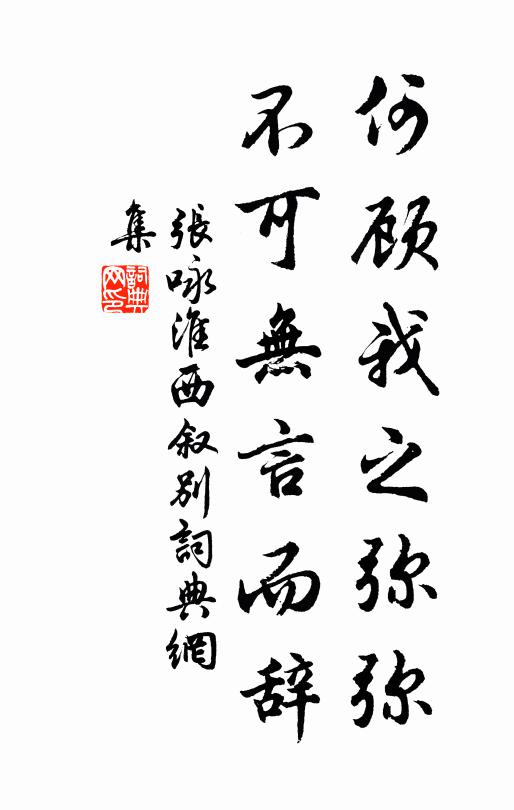 何顾我之弥弥
不可無言而辞
張咏淮西叙别詞典網
集
詞典網印